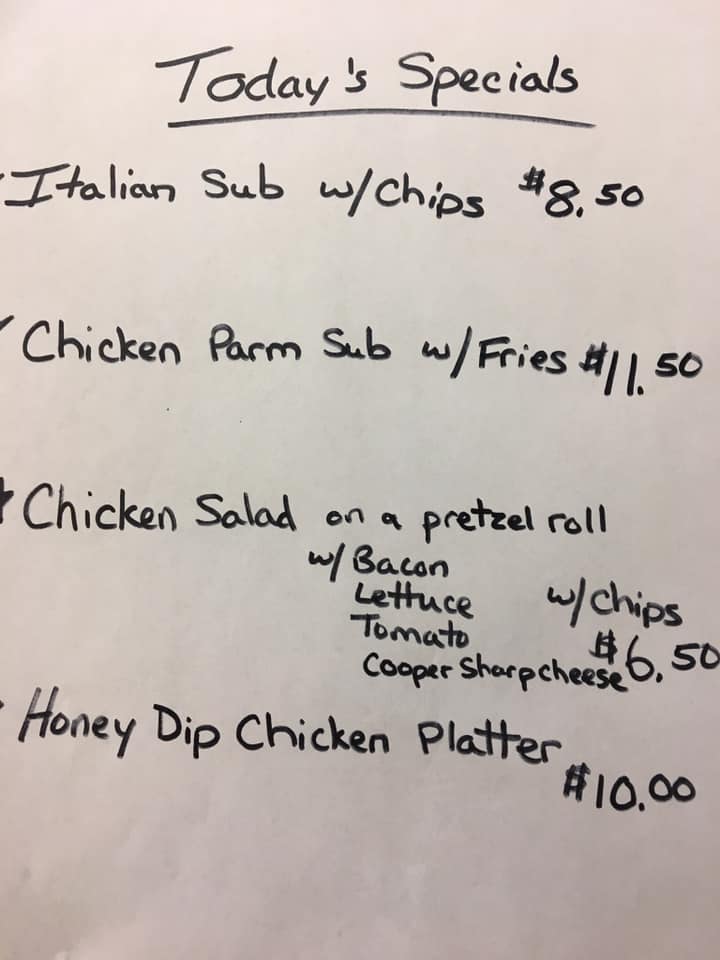 Today's Specials
Italian Sub w/Chips $8.50
Chicken Parm Sub w/Fries $11.50
Chicken Salad on a pretzel roll
w/ Bacon
Lettuce w/chips
Tomato $6.50
Cooper Sharp cheese
Honey Dip Chicken Platter
$10.00